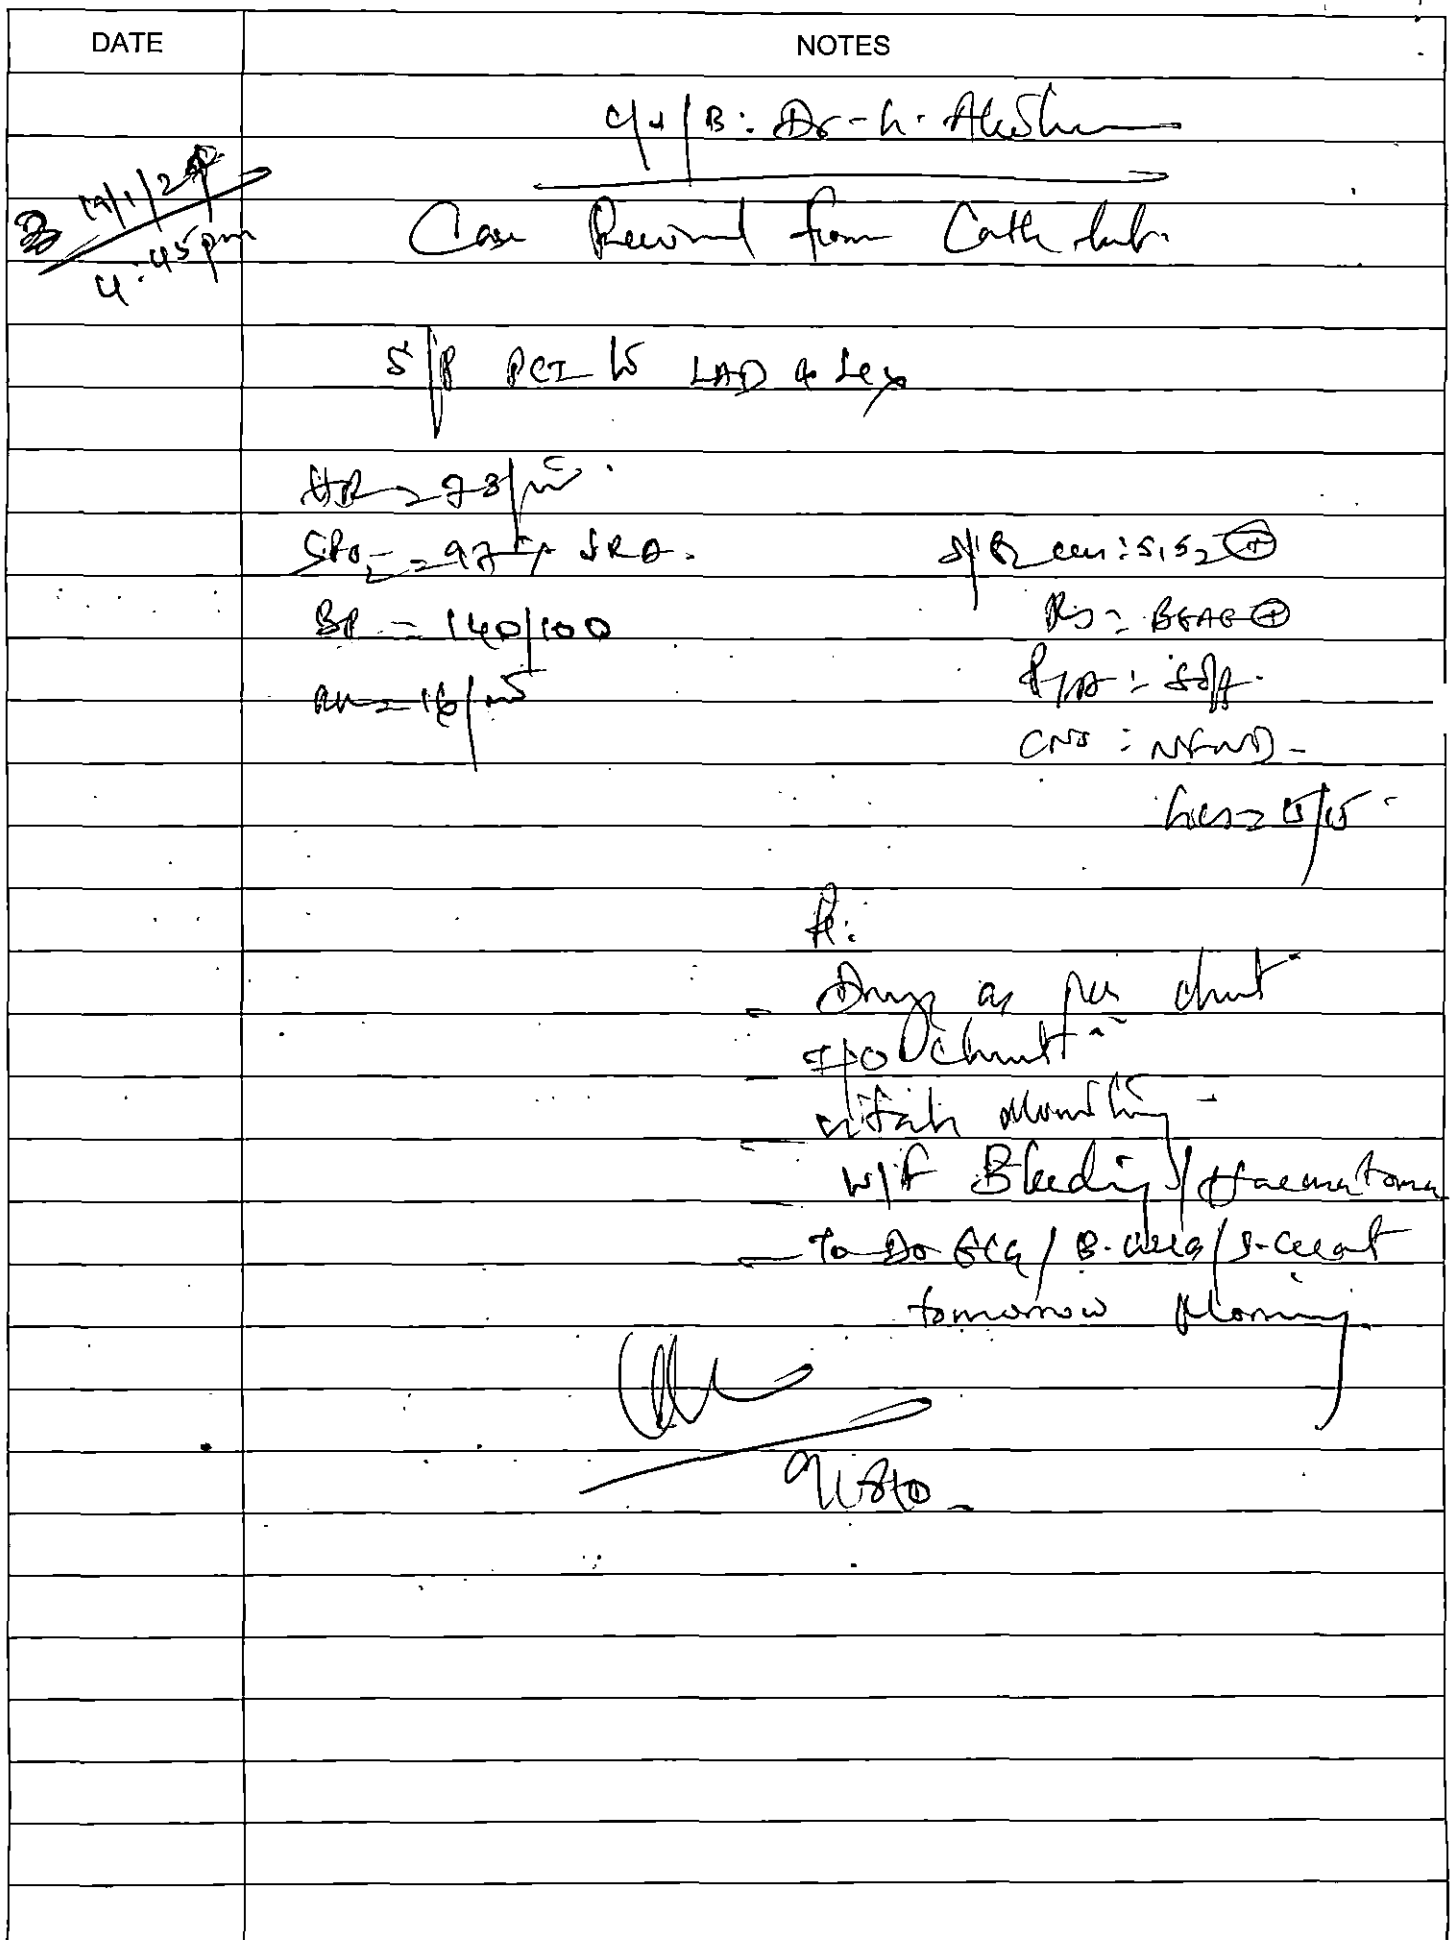 DATE NOTES
C/S/B: Dr. h. Akshu
19/1/24
4:45pm
Case Received from Cath lab.
S/P PCI to LAD & LCx
HR = 73/min.
SPO2 = 97% RA.
S/E CVS: S1S2 ⊕
BP = 140/100
RS: BLAE ⊕
RR = 16/min
P/A: Soft.
CNS: NFND-
GCS = 15/15
R:
- Drugs as per chart
- I/O chart
- vitals Monitoring -
W/F Bleeding / Haematoma
- To Do ECG / B. urea / S. creat
tomorrow Morning.